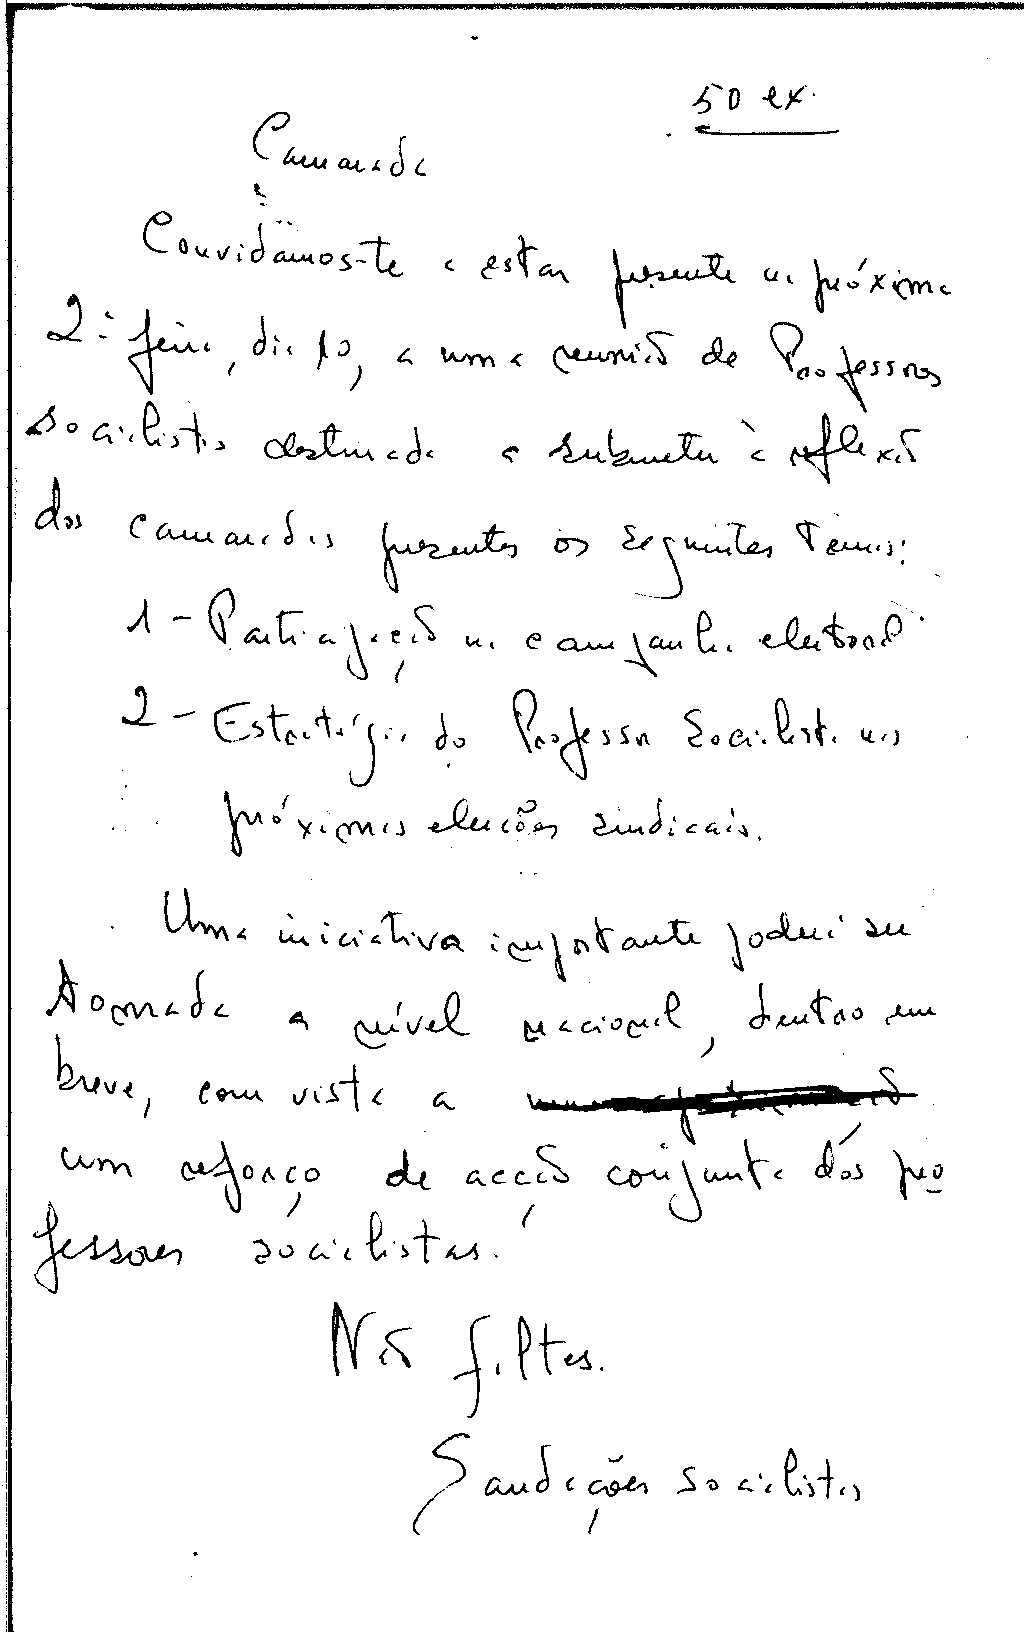 50 ex.
Camarada
Convidamos-te a estar presente na próxima
2ª feira, dia 10, a uma reunião de Professores
socialistas destinada a submeter à reflexão
dos camaradas presentes os seguintes temas:
1 - Participação na campanha eleitoral
2 - Estratégia do Professor Socialista nas
próximas eleições sindicais.
Uma iniciativa importante poderá ser
tomada a nível nacional, dentro em
breve, com vista a
um reforço de acção conjunta dos pro
fessores socialistas.
Não faltes.
Saudações socialistas